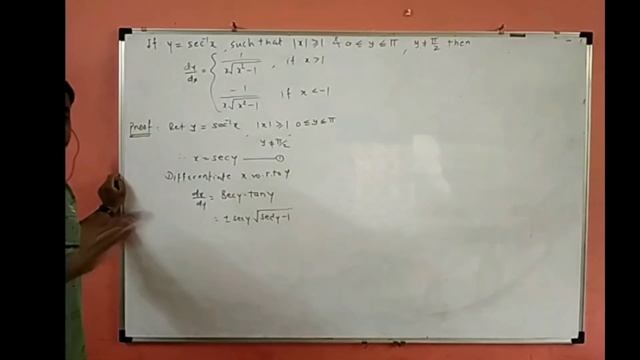 If y = sec⁻¹x, such that |x| ≥ 1 & 0 ≤ y ≤ π, y ≠ π/2 then
dy/dx = { 1/(x√(x²-1)), if x > 1
-1/(x√(x²-1)) if x < -1
Proof: Let y = sec⁻¹x |x| ≥ 1 0 ≤ y ≤ π
y ≠ π/2
∴ x = sec y ——— ①
Differentiate x w.r.to y
dx/dy = sec y · tan y
= ± sec y √(sec²y-1)